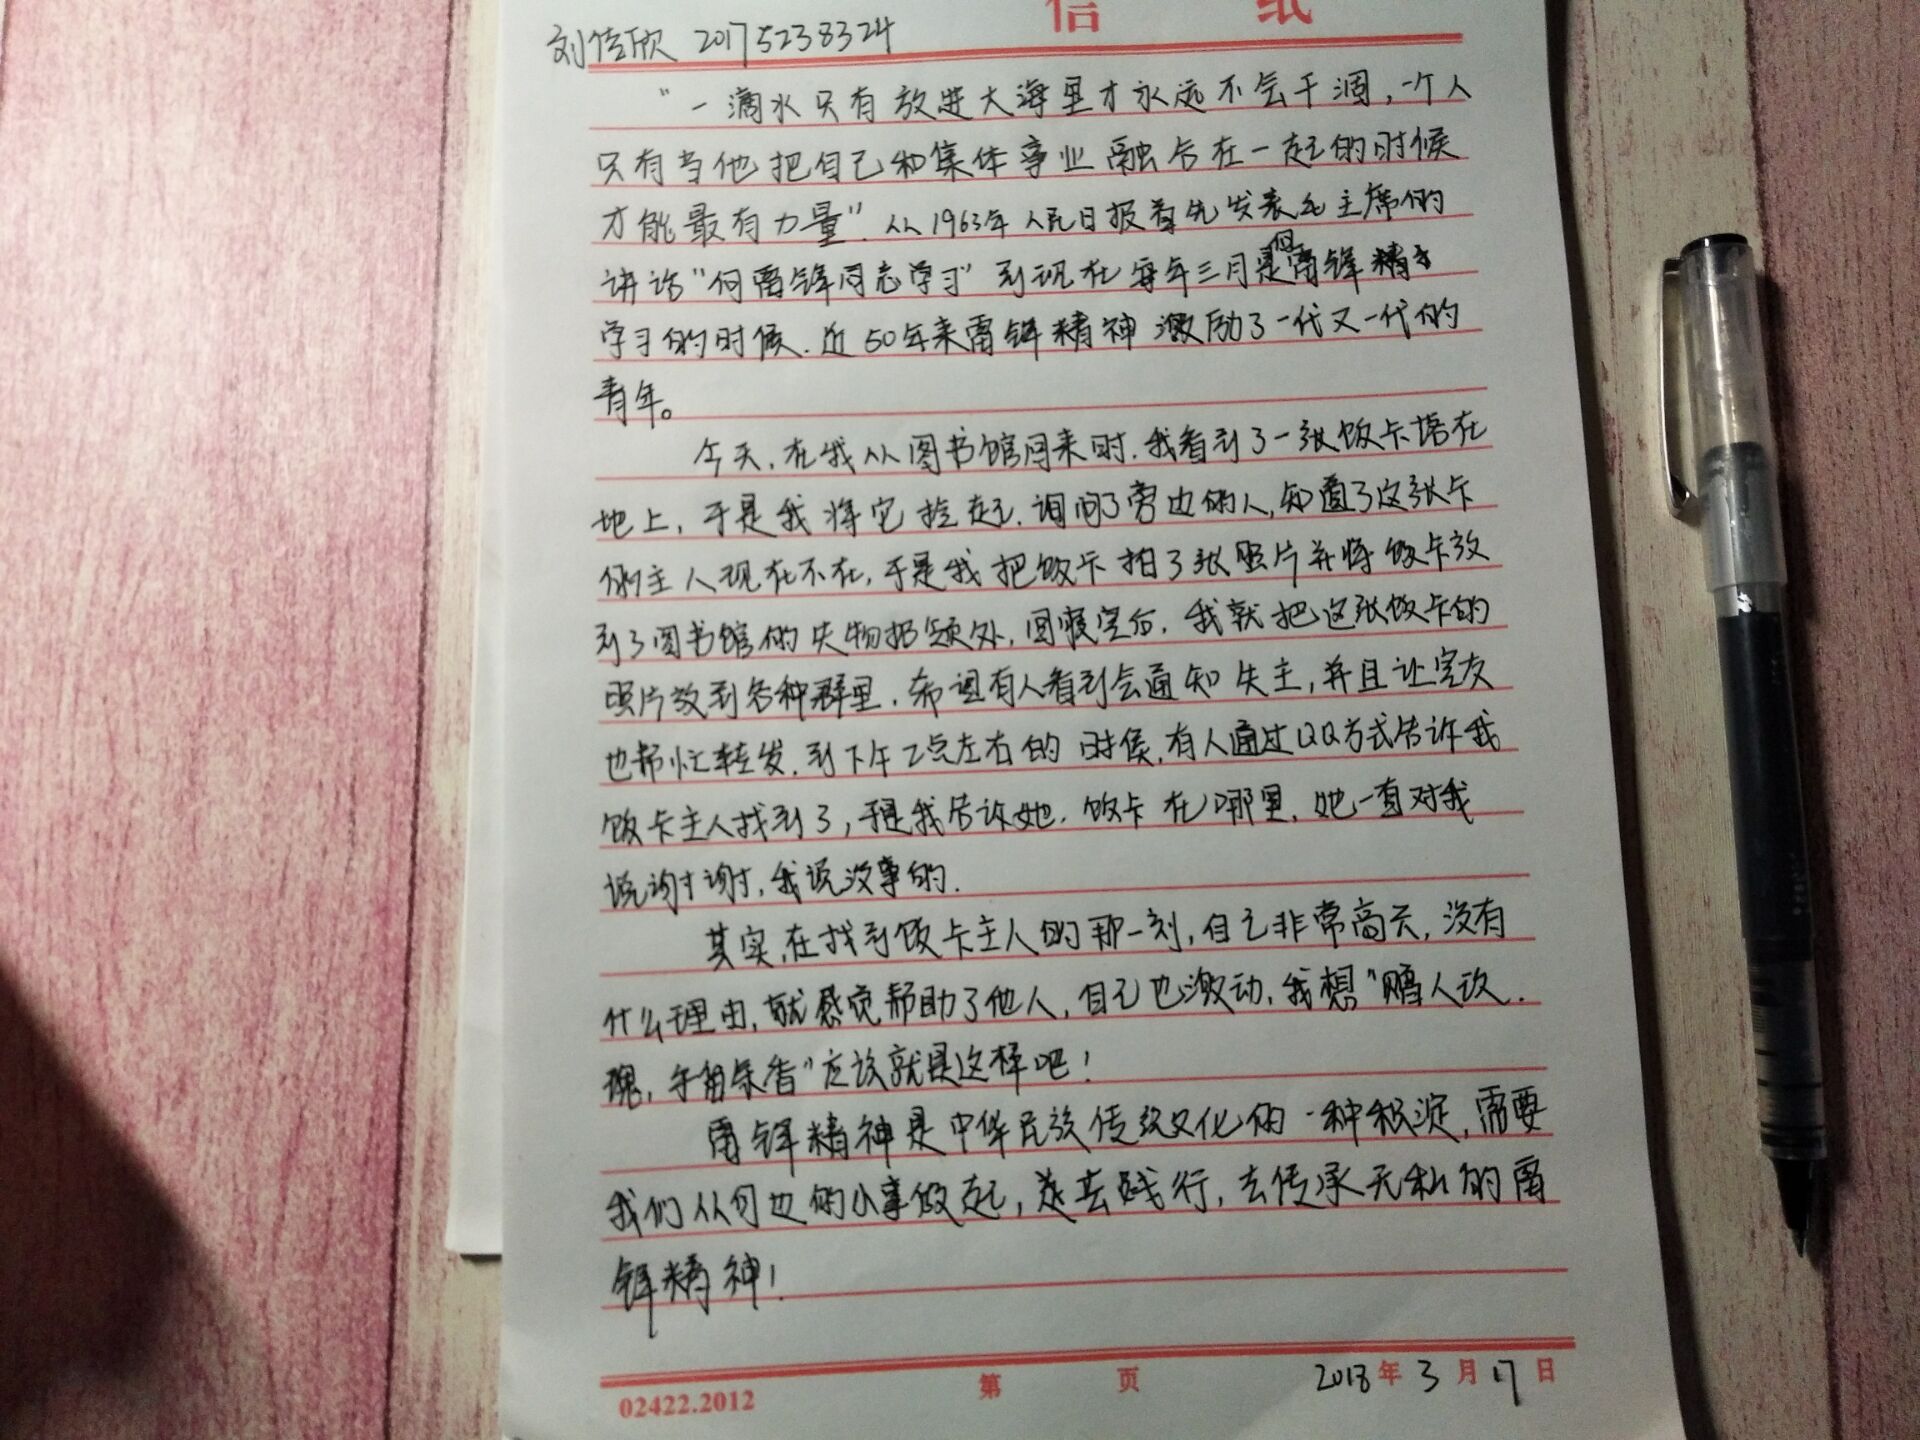 信 纸
刘佳欣 20175238324
“一滴水只有放进大海里才永远不会干涸,一个人
只有当他把自己和集体事业融合在一起的时候
才能最有力量”.从1963年人民日报首先发表毛主席的
讲话“向雷锋同志学习”到现在每年三月是向雷锋精神
学习的时候.近50年来雷锋精神激励了一代又一代的
青年。
今天,在我从图书馆回来时.我看到了一张饭卡落在
地上,于是我将它捡起.询问了旁边的人,知道了这张卡
的主人现在不在,于是我把饭卡拍了张照片并将饭卡放
到了图书馆的失物招领处,回寝室后,我就把这张饭卡的
照片放到各种群里.希望有人看到会通知失主,并且让室友
也帮忙转发.到下午2点左右的时候,有人通过QQ方式告诉我
饭卡主人找到了,于是我告诉她.饭卡在哪里.她一直对我
说谢谢,我说没事的.
其实,在找到饭卡主人的那一刻,自己非常高兴,没有
什么理由,就感觉帮助了他人,自己也激动,我想“赠人玫.
瑰,手留余香”应该就是这样吧!
雷锋精神是中华民族传统文化的一种积淀,需要
我们从身边的小事做起,去践行,去传承无私的雷
锋精神!
02422.2012 第 页 2018年3月17日